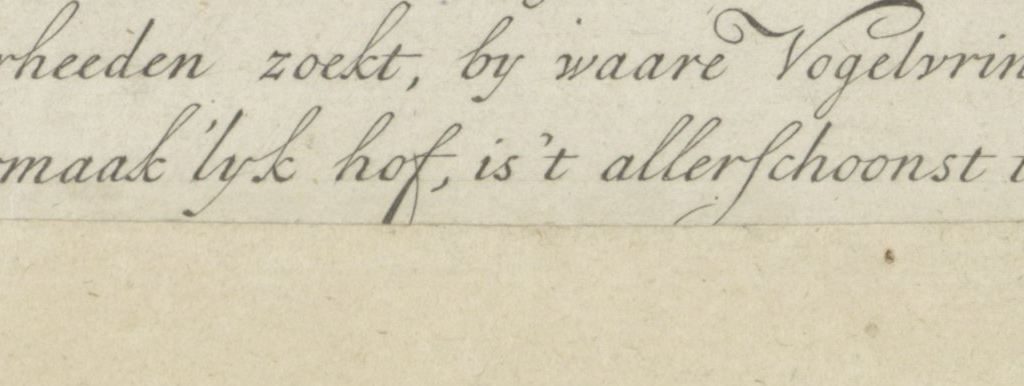 rheeden zoekt, by waare Vogelvrin
maak'lyk hof, is 't allerſchoonst t